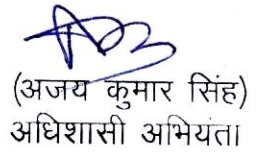 (अजय कुमार सिंह)
अधिशासी अभियंता